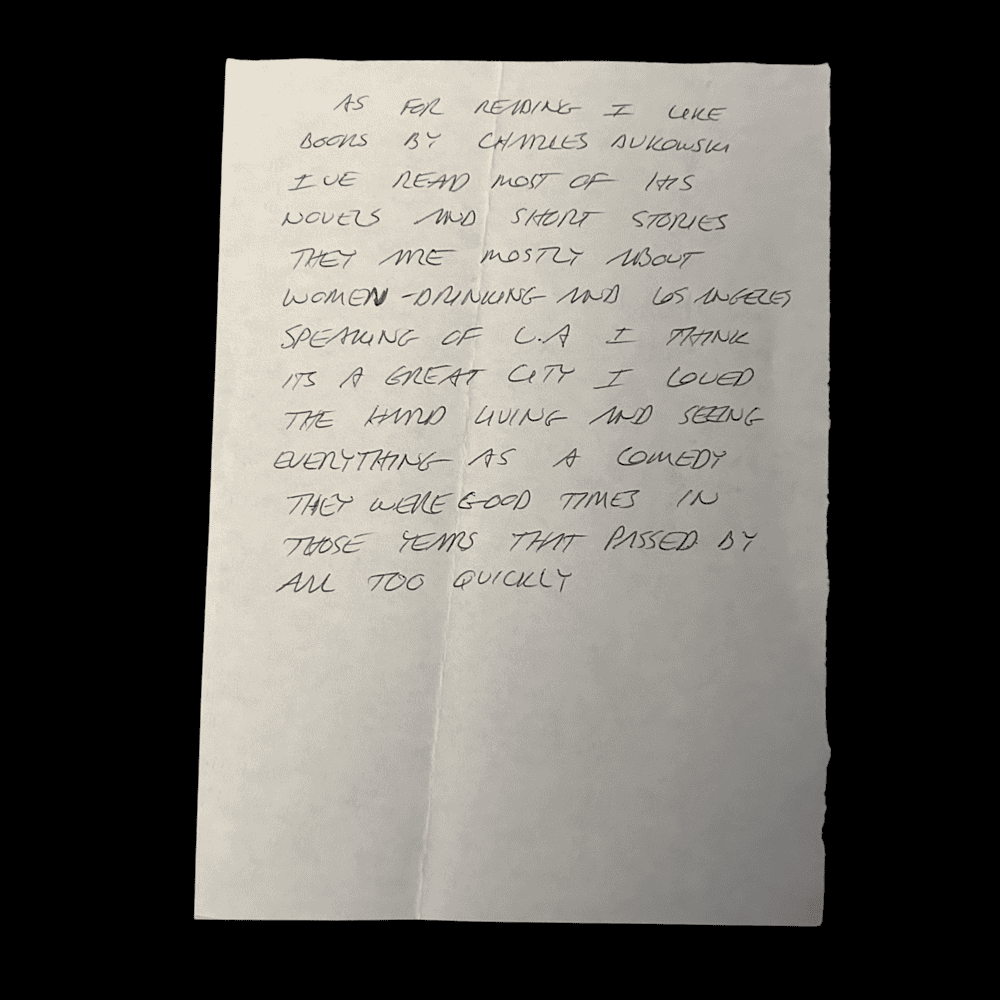 AS FOR READING I LIKE
BOOKS BY CHARLES BUKOWSKI
IVE READ MOST OF HIS
NOVELS AND SHORT STORIES
THEY ARE MOSTLY ABOUT
WOMEN - DRINKING AND LOS ANGELES
SPEAKING OF L.A I THINK
ITS A GREAT CITY I LOVED
THE HARD LIVING AND SEEING
EVERYTHING AS A COMEDY
THEY WERE GOOD TIMES IN
THOSE YEARS THAT PASSED BY
ALL TOO QUICKLY